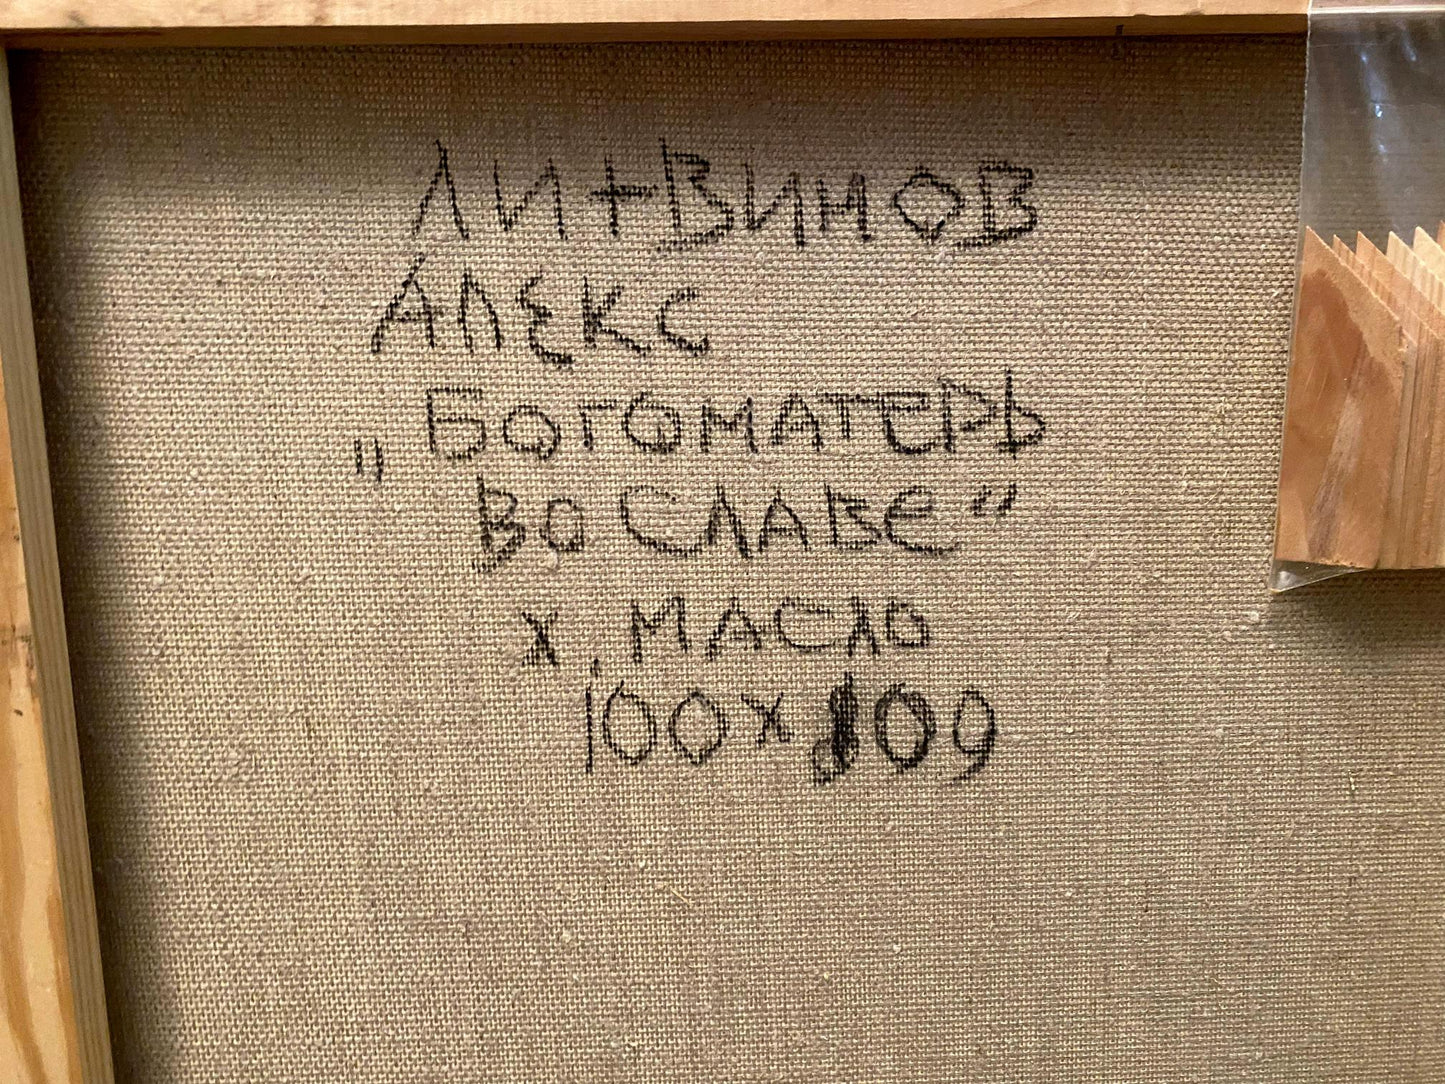 ЛИТВИНОВ
АЛЕКС
„БОГОМАТЕРЬ
ВО СЛАВЕ"
х. МАСЛО
100х109